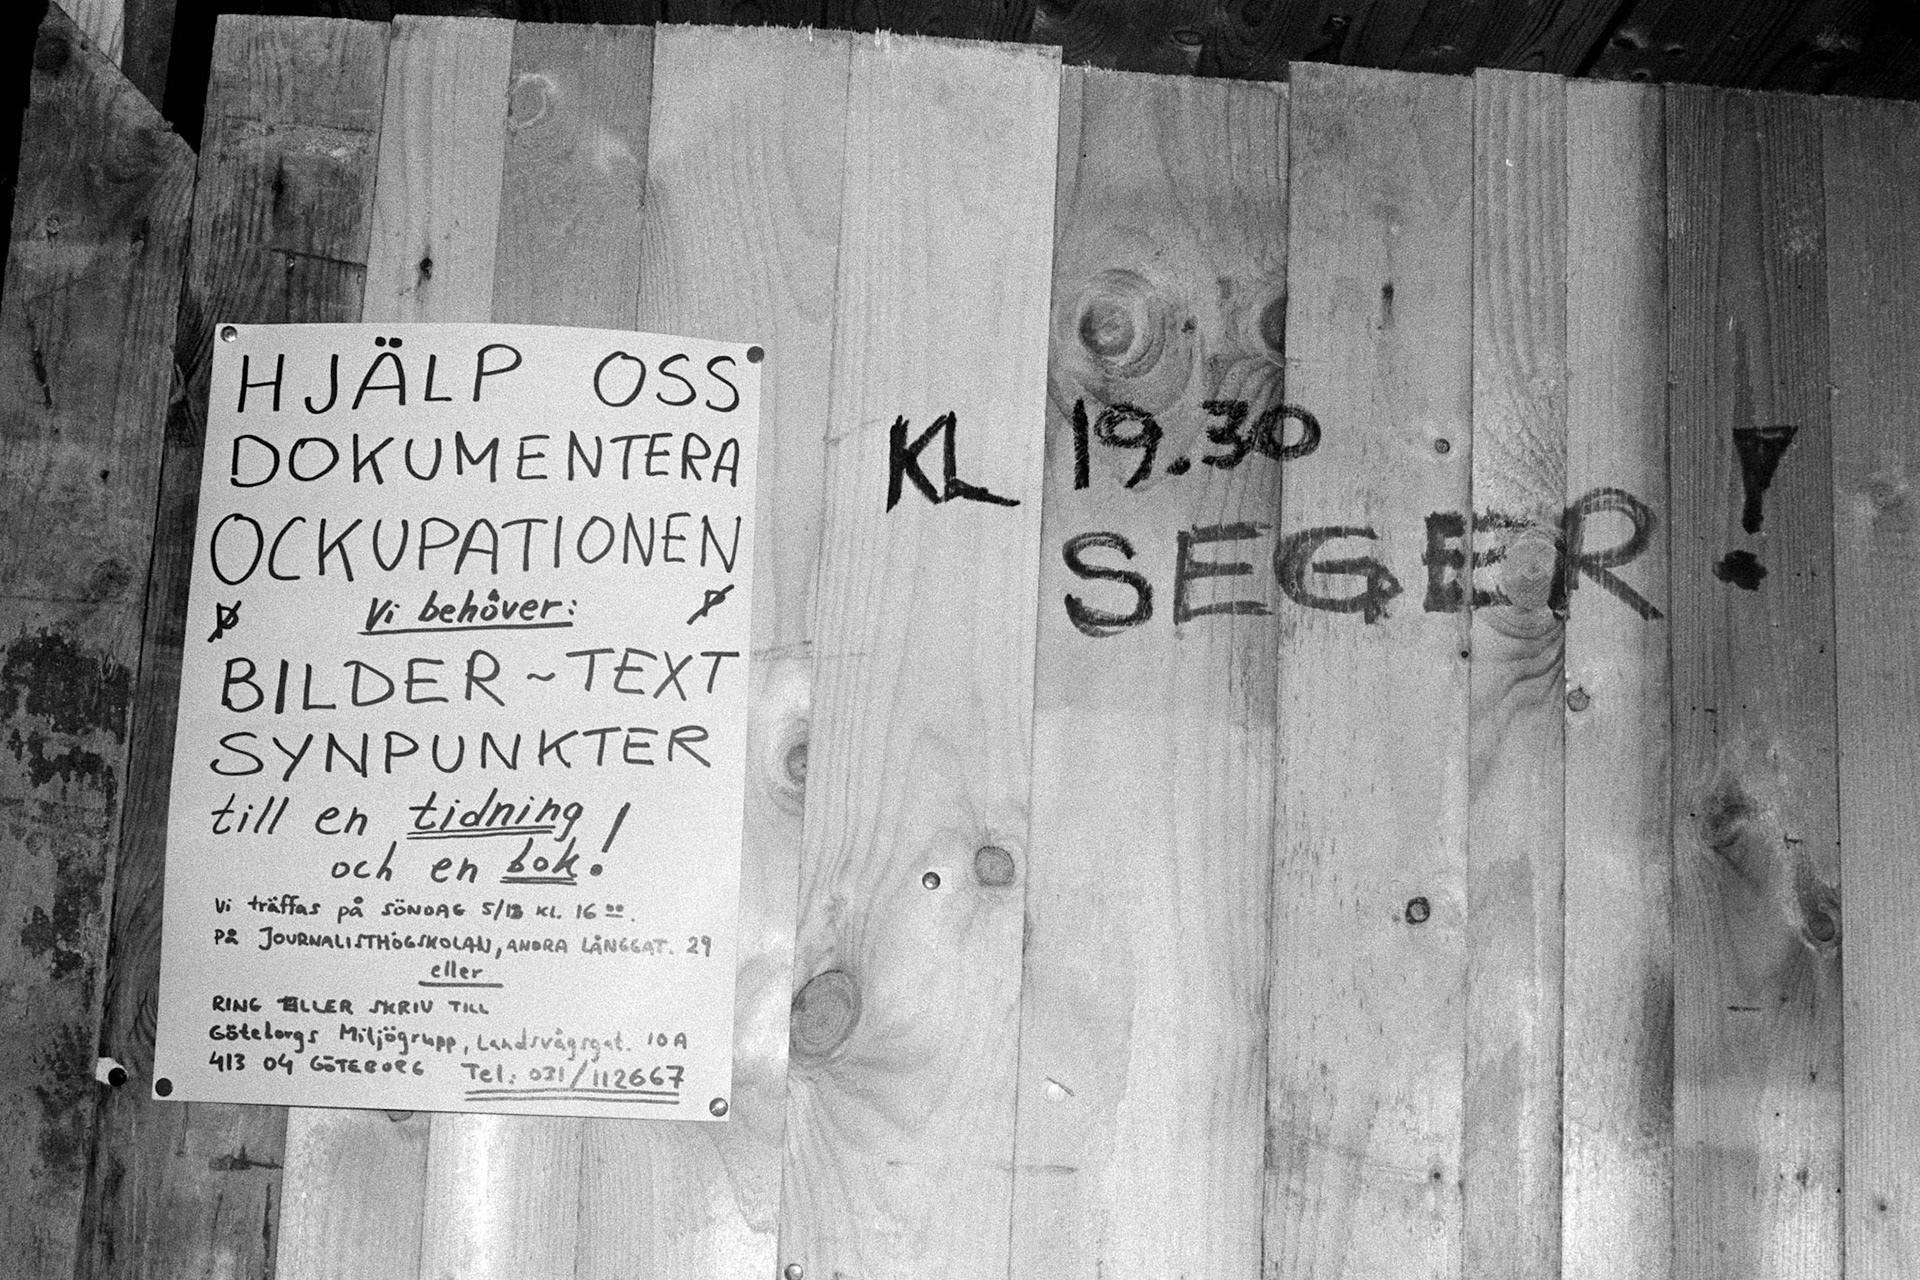 HJÄLP OSS
DOKUMENTERA
OCKUPATIONEN
Vi behöver:
BILDER ~ TEXT
SYNPUNKTER
till en tidning
och en bok!
Vi träffas på SÖNDAG 5/12 KL. 16 00.
På JOURNALISTHÖGSKOLAN, ANDRA LÅNGGAT. 29
eller
RING ELLER SKRIV TILL
Göteborgs Miljögrupp, Landsvägsgat. 10A
413 04 GÖTEBORG Tel: 031/112667
KL 19.30
SEGER!